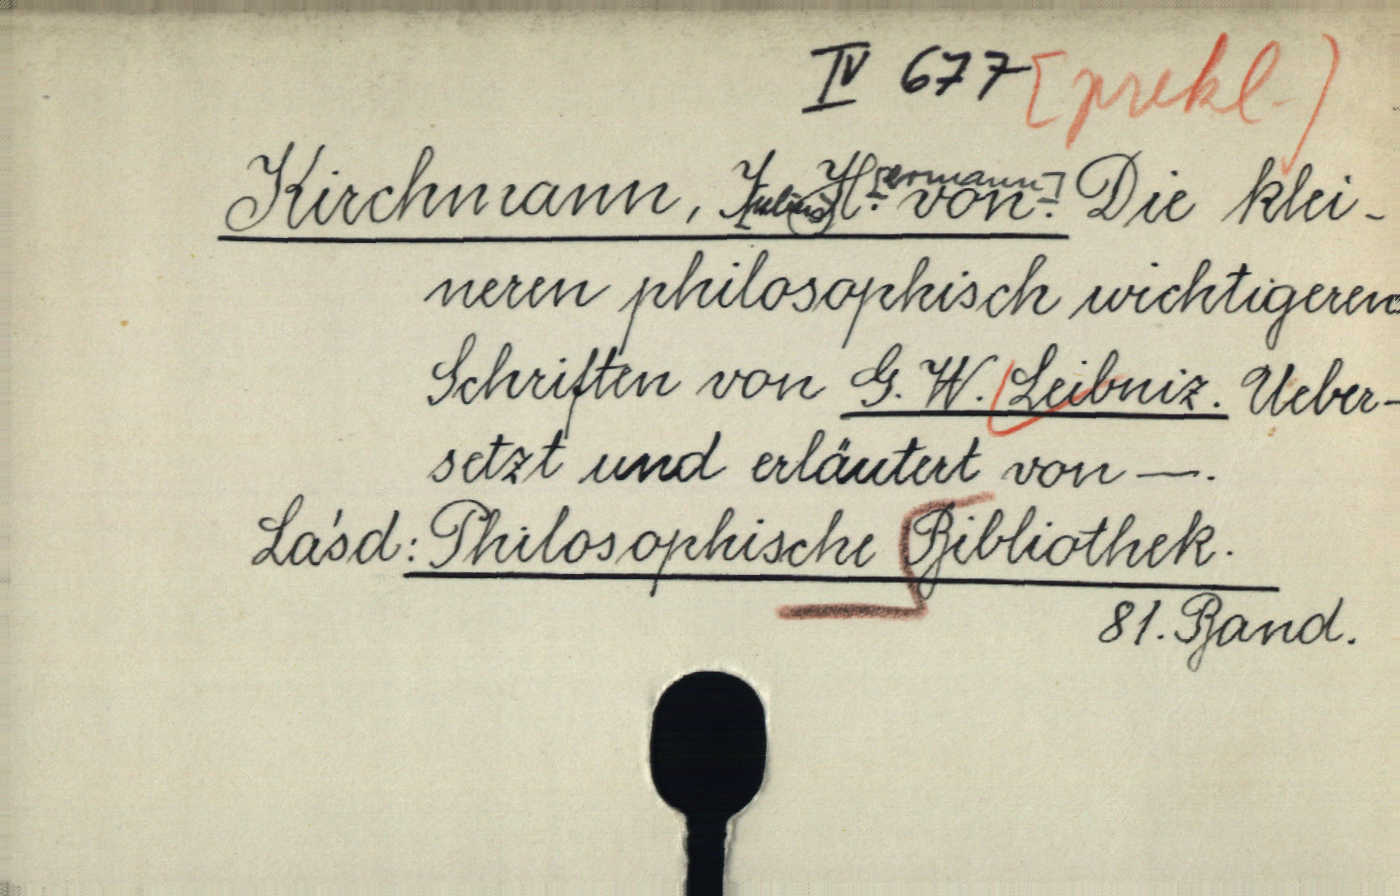 IV 677 [prekl.)
Kirchmann, J[ulius] H.[ermann] von. Die klei-
neren philosophisch wichtigeren
Schriften von G. W. Leibniz. Ueber-
setzt und erläutert von —.
Lásd: Philosophische Bibliothek.
81. Band.